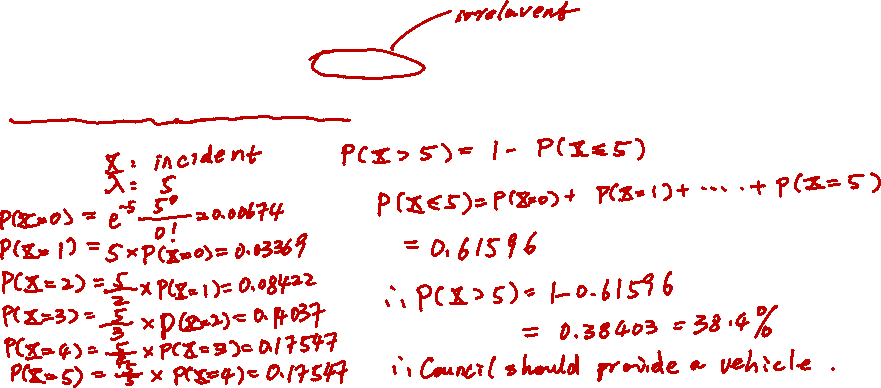 irrelavent
X: incident
λ: 5
P(X=0) = e^-5 5^0/0! = 0.00674
P(X=1) = 5 × P(X=0) = 0.03369
P(X=2) = 5/2 × P(X=1) = 0.08422
P(X=3) = 5/3 × P(X=2) = 0.14037
P(X=4) = 5/4 × P(X=3) = 0.17547
P(X=5) = 5/5 × P(X=4) = 0.17547
P(X>5) = 1 - P(X≤5)
P(X≤5) = P(X=0) + P(X=1) + ..... + P(X=5)
= 0.61596
∴ P(X>5) = 1-0.61596
= 0.38403 = 38.4%
∴ Council should provide a vehicle.